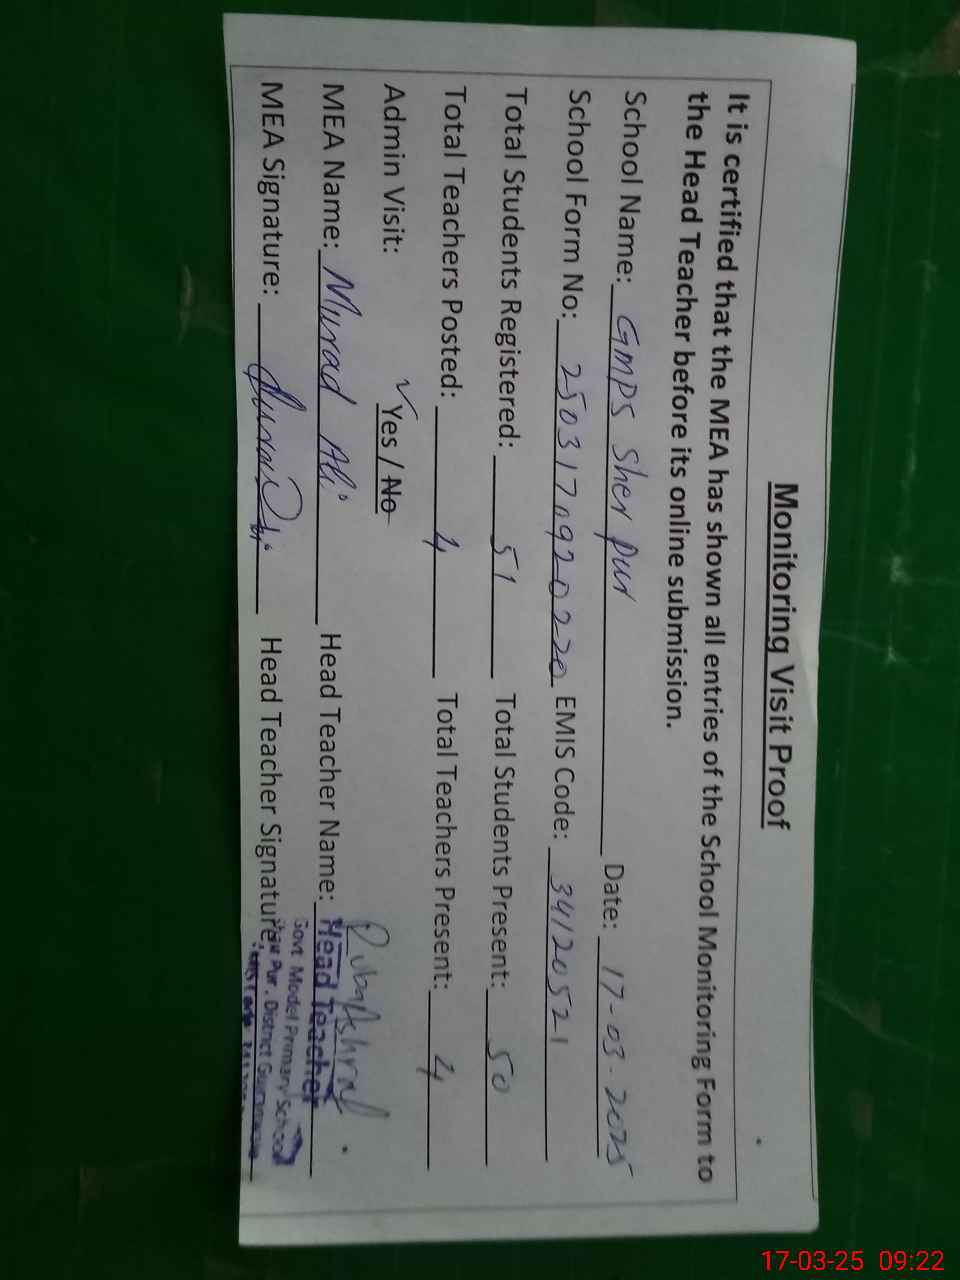 Monitoring Visit Proof
It is certified that the MEA has shown all entries of the School Monitoring Form to
the Head Teacher before its online submission.
School Name: GMPS Sher pur Date: 17-03-2025
School Form No: 2503170920220 EMIS Code: 34120521
Total Students Registered: 51 Total Students Present: 50
Total Teachers Posted: 4 Total Teachers Present: 4
Admin Visit: ✓ Yes / No
MEA Name: Murad Ali Head Teacher Name:
Head Teacher
Govt Model Primary School
Pur. District
MEA Signature: Head Teacher Signature:
17-03-25 09:22